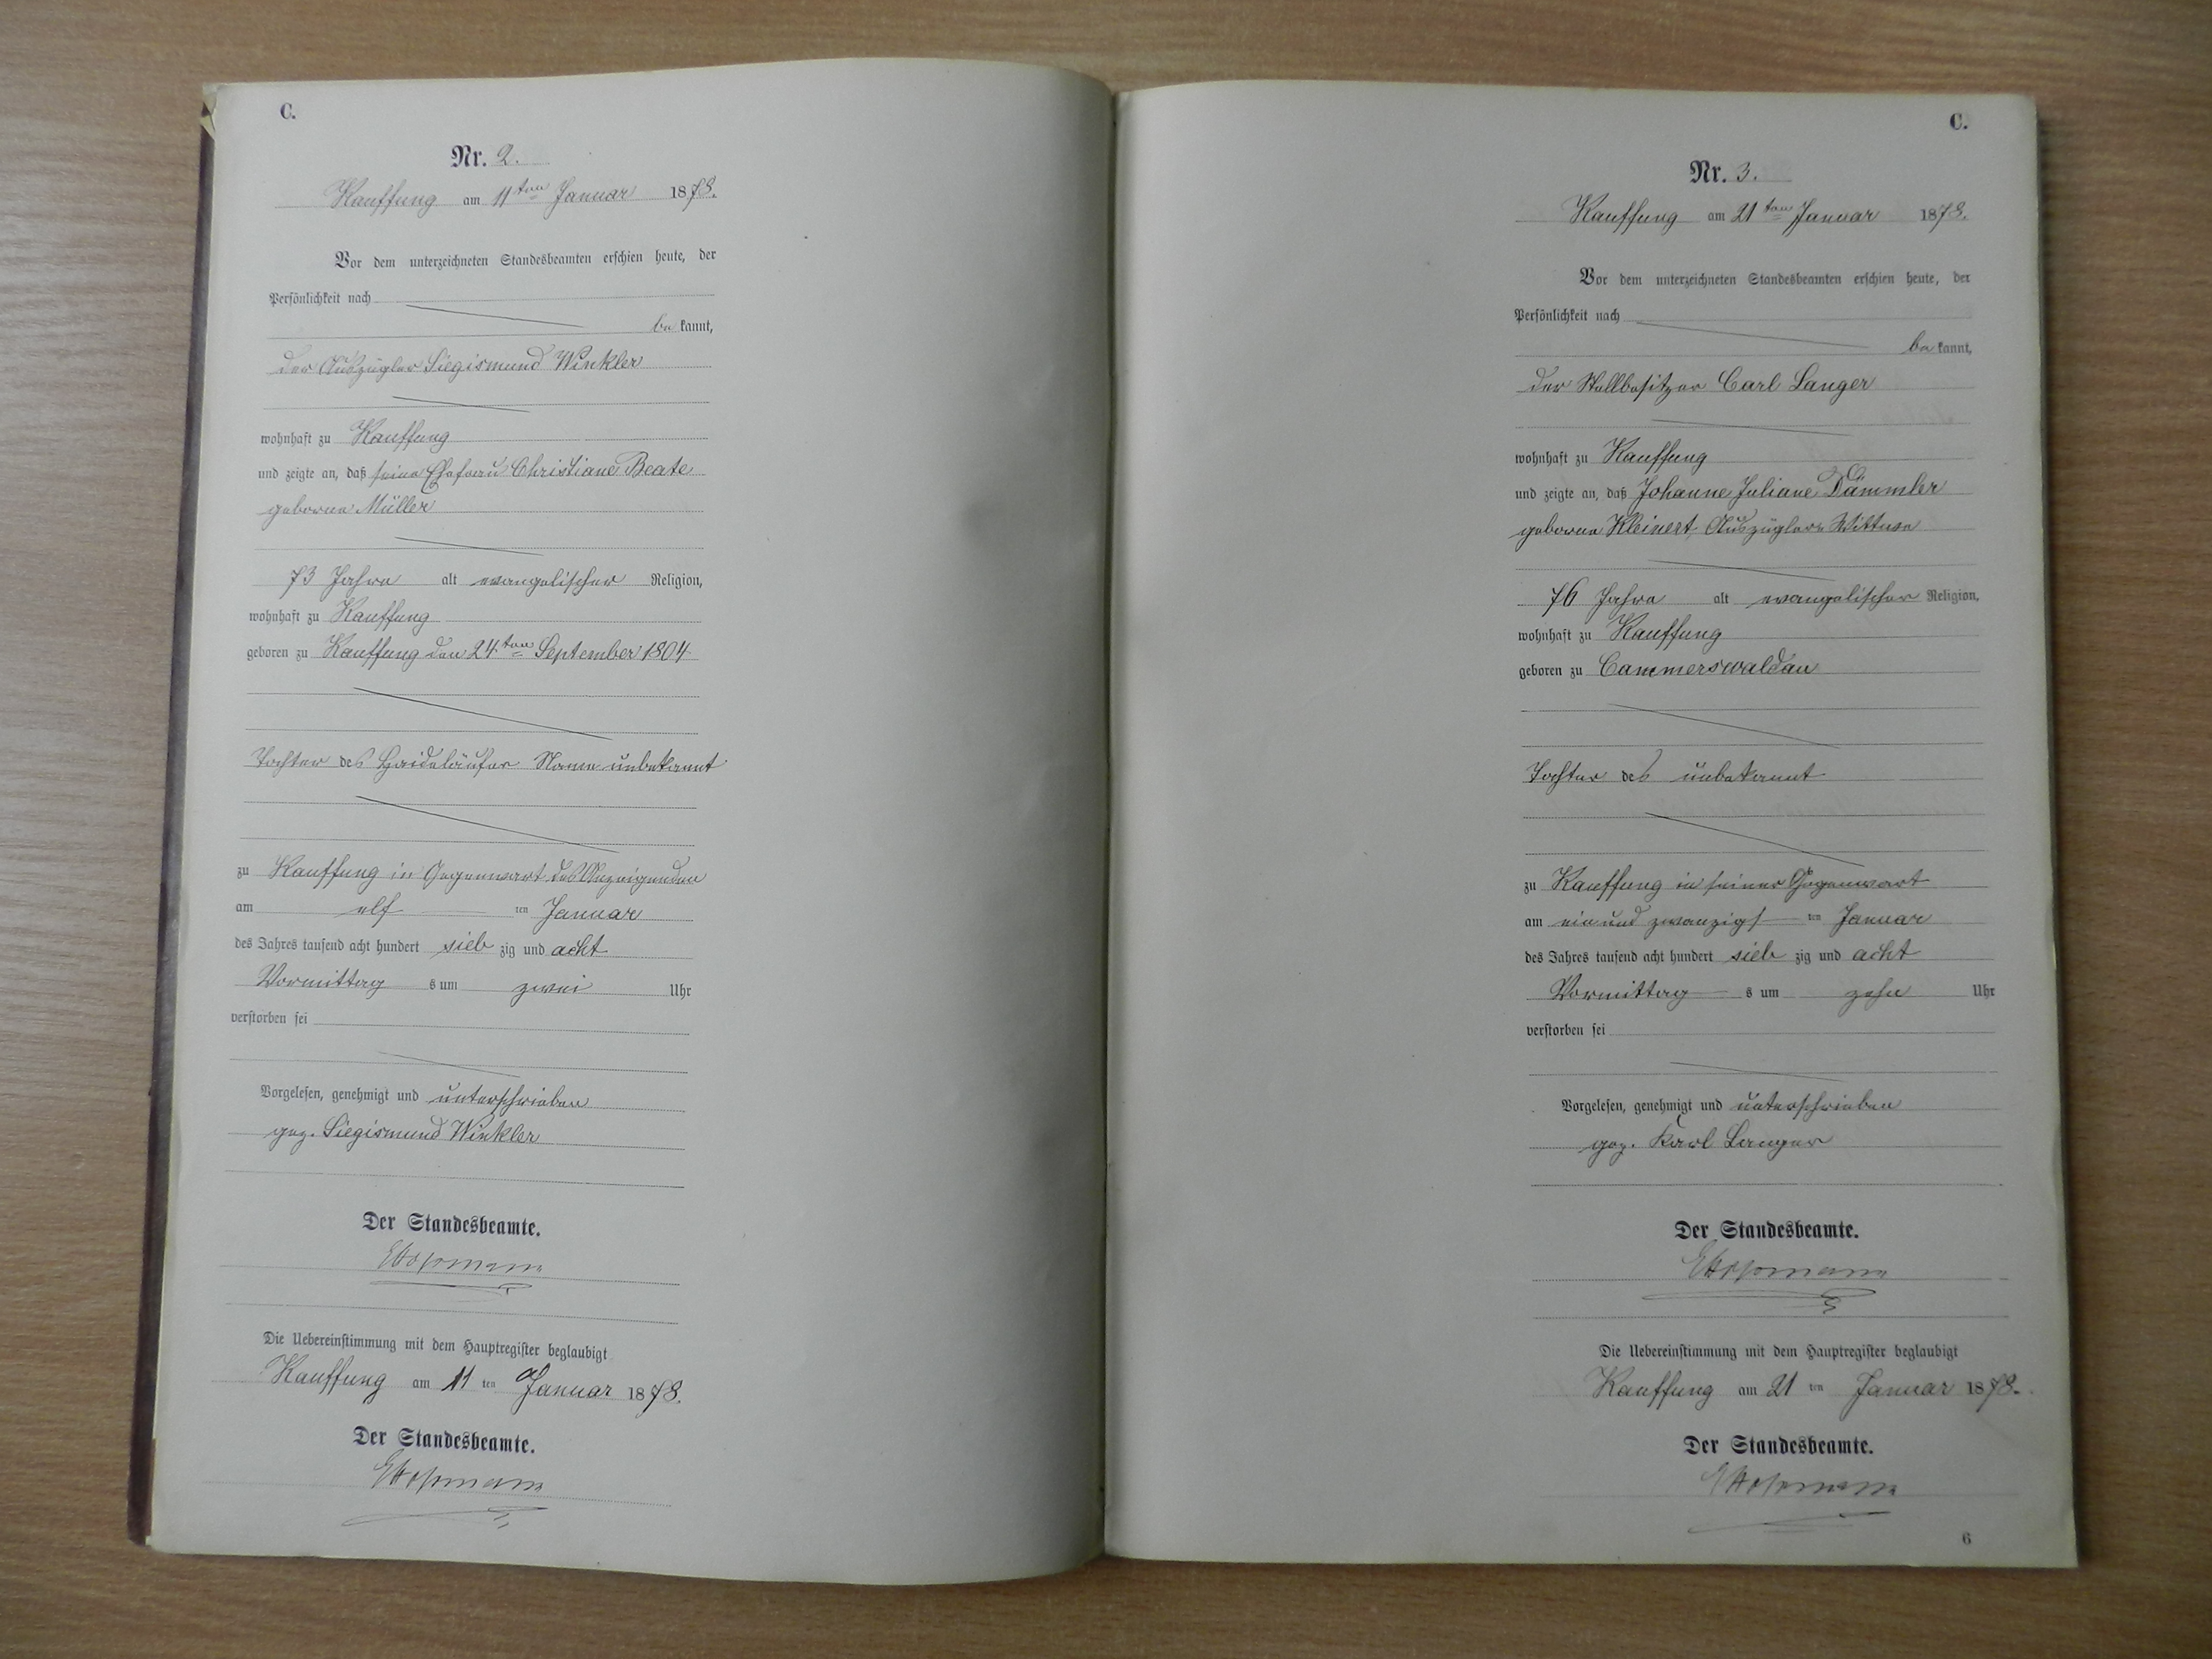 C.
Nr. 2.
Kauffung am 11ten Januar 1878.
Vor dem unterzeichneten Standesbeamten erschien heute, der
Persönlichkeit nach
be kannt,
der Auszügler Siegismund Winkler
wohnhaft zu Kauffung
und zeigte an, daß seine Ehefrau Christiane Beate
geborne Müller
73 Jahre alt evangelischer Religion,
wohnhaft zu Kauffung
geboren zu Kauffung den 24ten September 1804
Tochter des Haideläufer Name unbekannt
zu Kauffung in Gegenwart des Anzeigenden
am elf ten Januar
des Jahres tausend acht hundert sieb zig und acht
Vormittag s um zwei Uhr
verstorben sei
Vorgelesen, genehmigt und unterschrieben
gez. Siegismund Winkler
Der Standesbeamte.
Die Uebereinstimmung mit dem Hauptregister beglaubigt
Kauffung am 11 ten Januar 1878.
Der Standesbeamte.
C.
Nr. 3.
Kauffung am 21ten Januar 1878.
Vor dem unterzeichneten Standesbeamten erschien heute, der
Persönlichkeit nach
be kannt,
der Stellbesitzer Carl Langer
wohnhaft zu Kauffung
und zeigte an, daß Johanne Juliane Dämmler
geborne Kleinert, Auszüglers Wittwe
76 Jahre alt evangelischer Religion,
wohnhaft zu Kauffung
geboren zu Cammerswaldau
Tochter des unbekannt
zu Kauffung in seiner Gegenwart
am ein und zwanzigs ten Januar
des Jahres tausend acht hundert sieb zig und acht
Vormittag s um zehn Uhr
verstorben sei
Vorgelesen, genehmigt und unterschrieben
gez. Karl Langer
Der Standesbeamte.
Die Uebereinstimmung mit dem Hauptregister beglaubigt
Kauffung am 21 ten Januar 1878.
Der Standesbeamte.
6